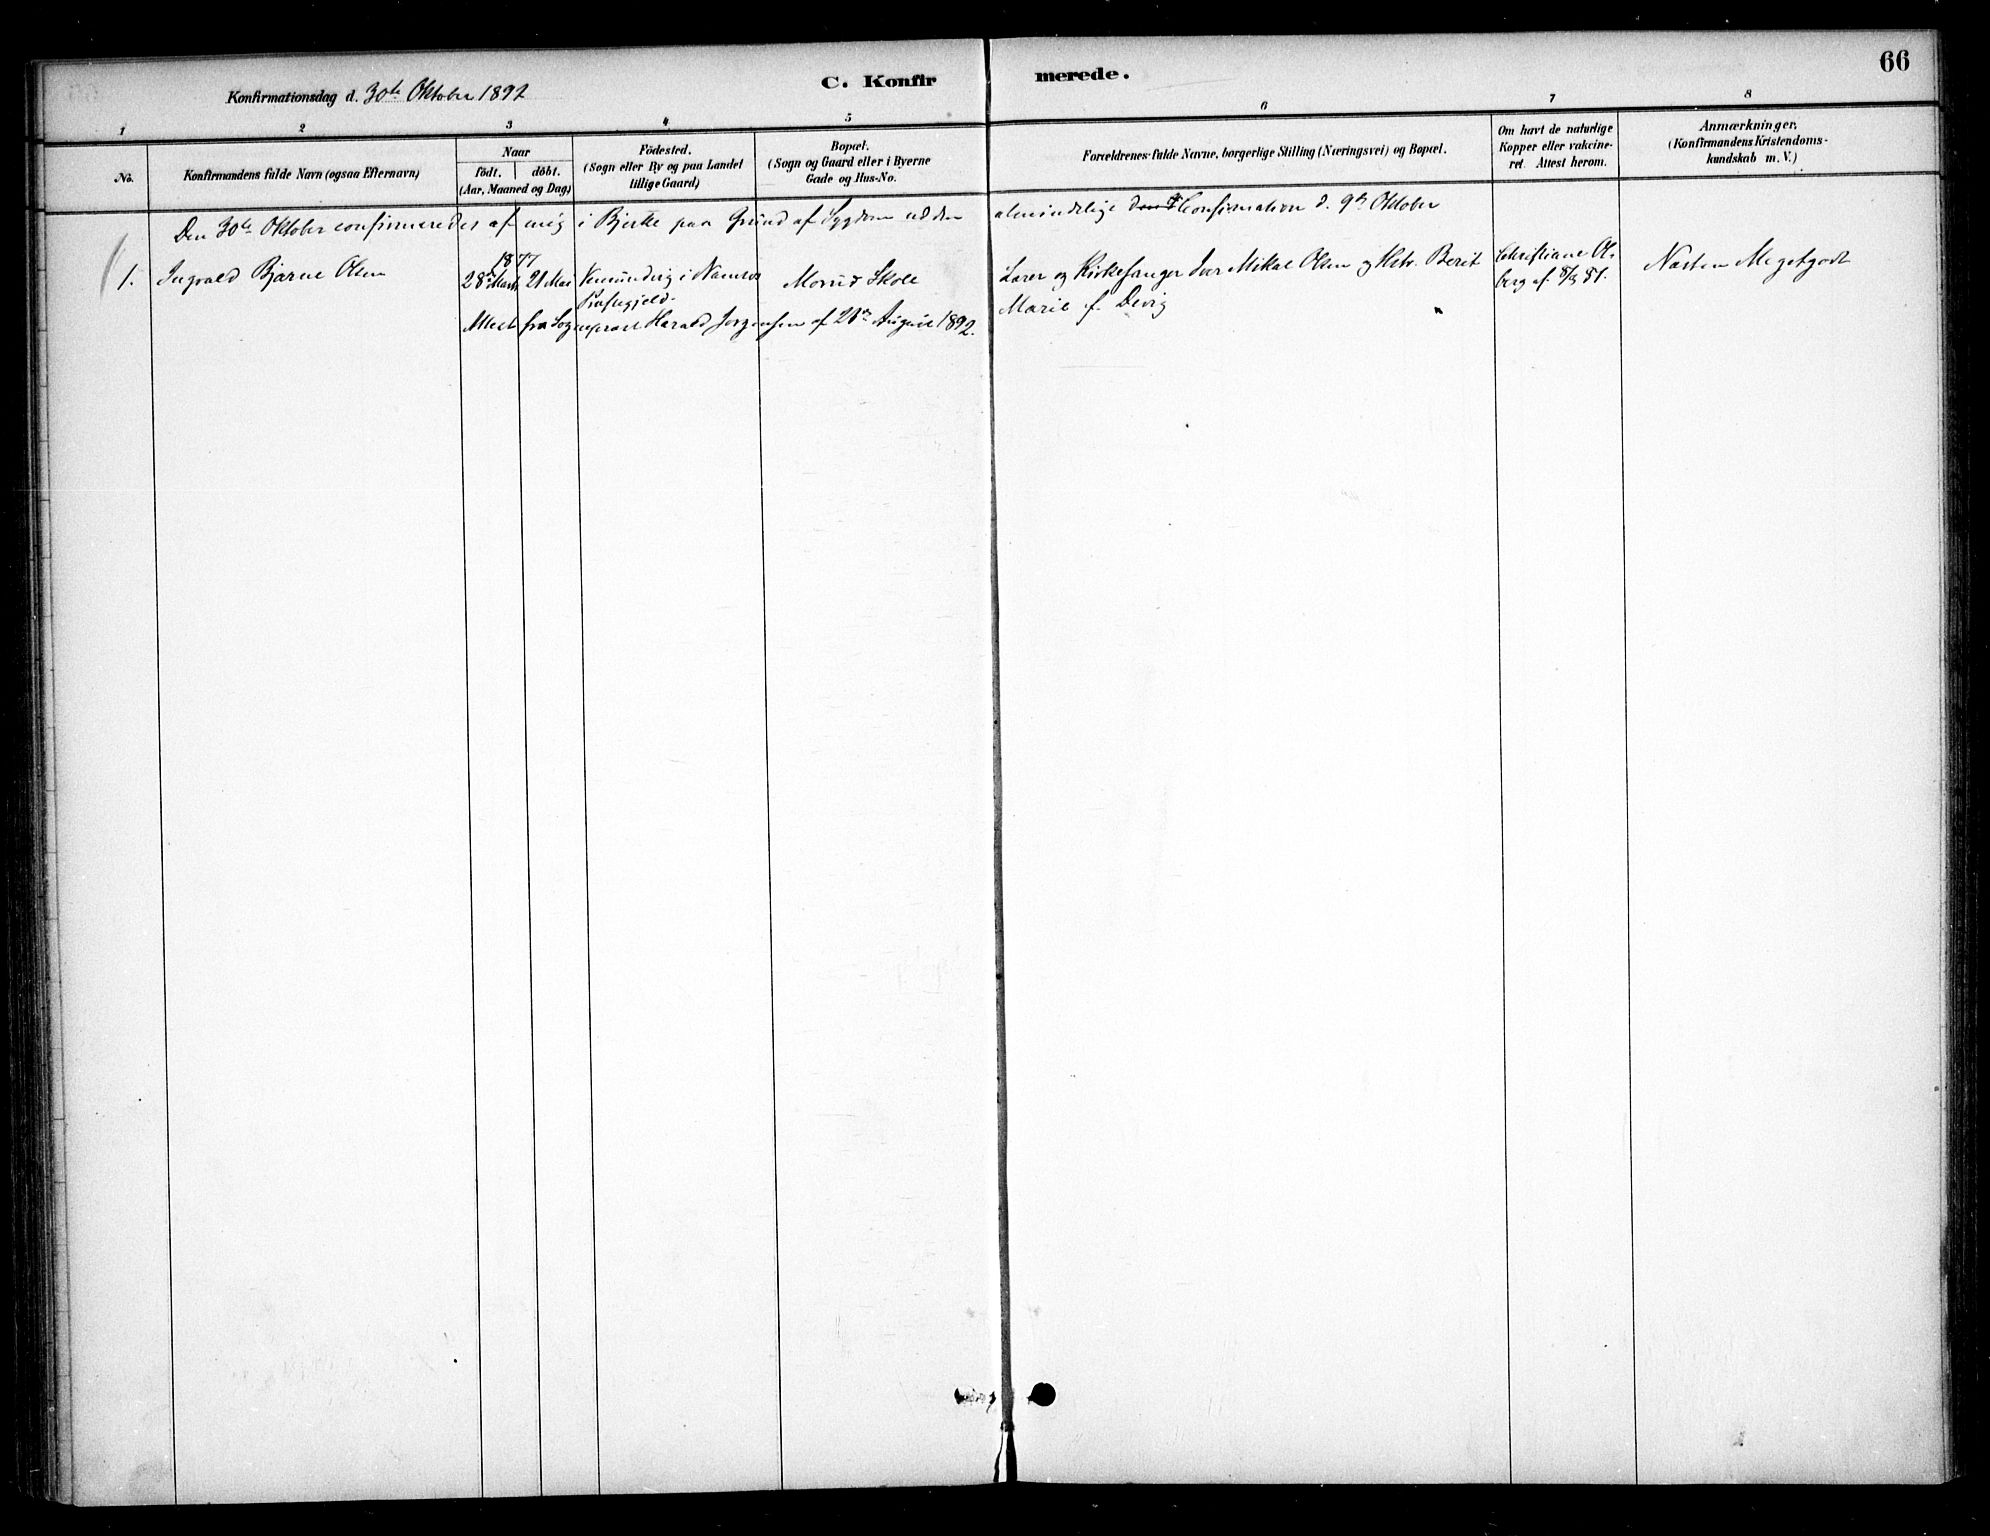 66
C. Konfirmerede.
Konfirmationsdag d. 30te Oktober 1892
1 2 3 4 5 6 7 8
No.
Konfirmandens fulde Navn (ogsaa Efternavn)
Naar
födt. döbt.
(Aar, Maaned og Dag)
Födested.
(Sogn eller By og paa Landet
tillige Gaard)
Bopæl.
(Sogn og Gaard eller i Byerne
Gade og Hus-No.
Forældrenes fulde Navne, borgerlige Stilling (Næringsvei) og Bopæl.
Om havt de naturlige
Kopper eller vakcine-
ret. Attest herom.
Anmærkninger.
(Konfirmandens Kristendoms-
kundskab m. V.)
Den 30te Oktober confirmeredes af mig i Bjerke paa Grund af Sygdom ud den almindelige Confirmation d. 9de Oktober
1877
1. Ingvald Bjarne Olsen 28de Marts 21 Mai i Namsos Morud Skole Lærer og Kirkesanger Iver Mikal Olsen og Hstr. Berit Christiane Ol- Næsten Megetgodt
Præstegjeld. Marie f. Devig berg af
Attest fra Sogneprest Harald Jorgensen af August 1892.